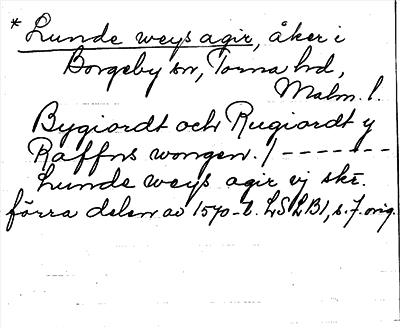 * Lunde weys agir, åker i
Borgeby sn, Torna hd,
Malm. l.
Bygiordt och Rugiordt y
Raffns wongen. / - - - - - - -
Lunde weys agir vj skr.
förra delen av 1570-t. LSLB1, s. 7. orig.